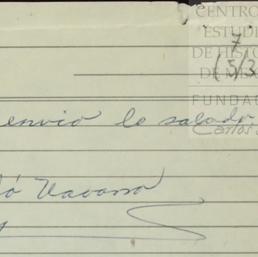 CENTRO
ESTUDI
DE HISTO
DE MÉ
FUNDAC
Carlos
7
(5/3
envio le saludo.
ó Navarro